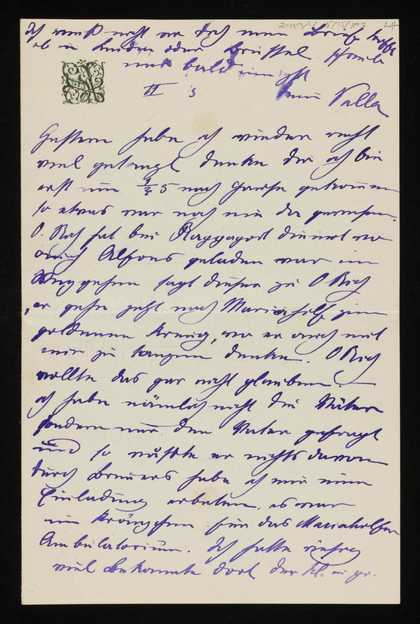 Ich weiß nicht wo dich mein Brief trifft
ob in London oder Bristol
und bald
Deine Valla
II
Gestern habe ich wieder recht
viel getanzt denke dir ich bin
erst um 5 nach Hause gekommen
so etwas war noch nie da gewesen.
O. Rich hat bei diniert wo
auch Alfons geladen war im
Weggehen sagt dieser zu O Rich
er gehe jetzt nach Mariahilf zum
goldenen Kreuz, wo er auch mit
mir zu tanzen denke. O Rich
wollte das gar nicht glauben
ich habe nämlich nicht die Mutter
sondern nur den Vater gefragt
und so wußte er nichts davon
durch habe ich mir eine
Einladung erbeten. es war
ein Kränzchen für das Mariahilfer
Ambulatorium. Ich hatte
viel Bekannte dort